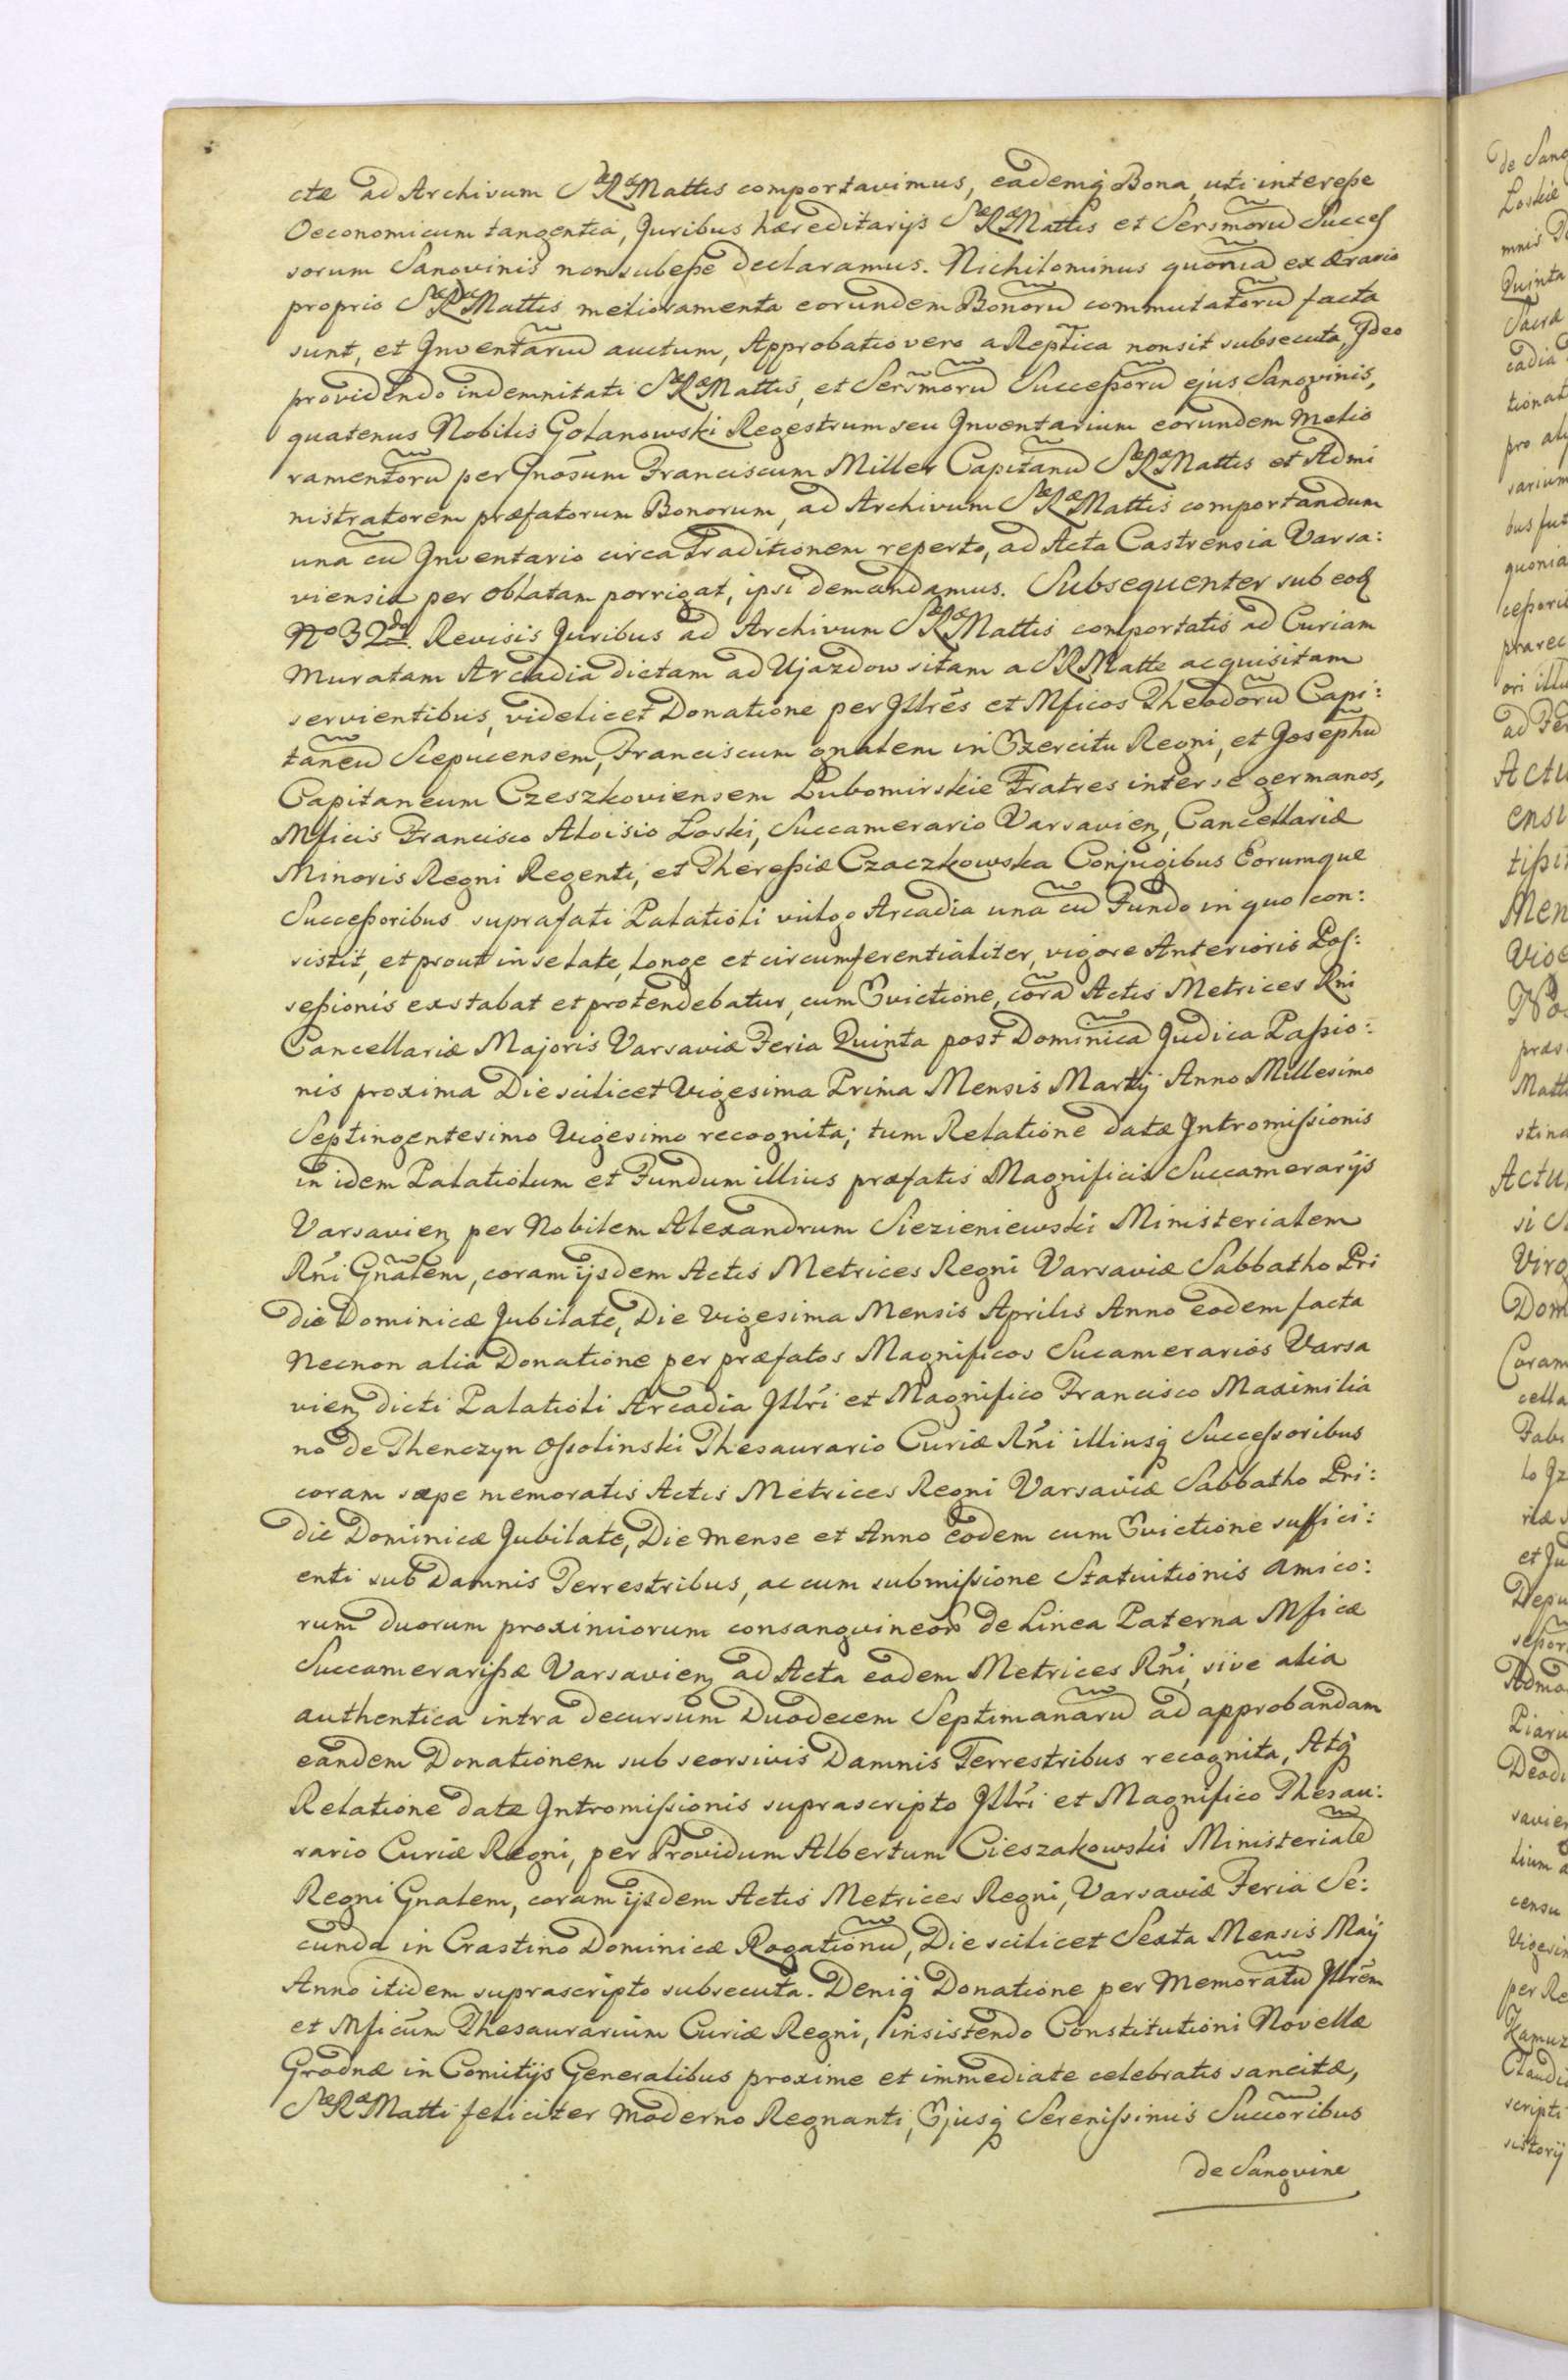 ctæ ad Archivum SæRæMattis comportavimus, eademq Bona, uti interesse
Oeconomicum tangentia, Juribus hæreditarijs SæRæMattis et Sersmorũ Succes
sorum Sangvinis non subesse declaramus. Nichilominus quoniã ex ærario
proprio SæRæMattis meliora­menta eorundem Bonorũ commutatorũ facta
sunt, et Inventariũ auctum, Approbatio vero a Reptica non sit subsecuta, Ideo
providendo indemnitati SæRæMattis, et Sersmorũ Successorũ ejus Sangvinis,
quatenus Nobilis Golanowski Regestrum seu Inventarium eorundem Melio
ramentorũ per Gnosum Franciscum Miller Capitanũ SæRæMattis et Admi
nistratorem præfatorum Bonorum, ad Archivum SæRæMattis comportandum
una cũ Inventario circa traditionem reperto, ad Acta Castrensia Varsa:
viensia per oblatam porrigat, ipsi demandamus. Subsequenter sub eod
No 32do. Revisis Juribus ad Archivum SæRæMattis comportatis ad Curiam
Muratam Arcadia dictam ad Ujazdow sitam a SRMatte acquisitam
servientibus, videlicet Donatione per Jllres et Mficos Theodorũ Capi:
taneũ Scepucensem, Franciscum gnalem in Exercitu Regni, et Josephũ
Capitaneum Czeszkoviensem Lubomirskie Fratres inter se germanos,
Mficis Francisco Aloisio Loski, Succamerario Varsavien, Cancellariæ
Minoris Regni Regenti, et Theressiæ Czaczkowska Conjugibus Eorumque
Successoribus suprafati Palatioli vulgo Arcadia una cũ Fundo in quo con:
sistit, et prout in se late, longe et circumferentialiter, vigore Anterioris Pos:
sessionis exstabat et protendebatur, cum Evictione, corã Actis Metrices Rni
Cancellariæ Majoris Varsaviæ Feria Quinta post Dominicã Judica Passio:
nis proxima Die scilicet Vigesima Prima Mensis Martij Anno Millesimo
Septingentesimo Vigesimo recognita; tum Relatione datæ Intromissionis
in idem Palatiolum et Fundum illius præfatis Magnificis Succamerarijs
Varsavien per Nobilem Alexandrum Siezieniewski Ministerialem
Rni Gnalem, coram ijsdem Actis Metrices Regni Varsaviæ Sabbatho Pri
die Dominicæ Jubilate, Die Vigesima Mensis Aprilis Anno eodem facta
Necnon alia Donatione per præfatos Magnificos Sucamerarios Varsa
vien dicti Palatioli Arcadia Jllri et Magnifico Francisco Maximilia
no de Thenczyn Ossolinski Thesaurario Curiæ Rni illiusq Successoribus
coram sæpe memoratis Actis Metrices Regni Varsaviæ Sabbatho Pri:
die Dominicæ Jubilate, Die mense et Anno eodem cum Evictione suffici:
enti sub Damnis Terrestribus, ac cum submissione Statuitionis amico:
rum duorum proximiorum consangvineor de Linea Paterna Mficæ
Succamerarissæ Varsavien ad Acta eadem Metrices Rni, sive alia
authentica intra decursum Duodecem Septimanarũ ad approbandam
eandem Donationem sub seorsivis Damnis Terrestribus recognita, Atq
Relatione datæ Intromissionis suprascripto Jllri et Magnifico Thesau:
rario Curiæ Regni, per Providum Albertum Cieszakowski Ministerialẽ
Regni Gnalem, coram ijsdem Actis Metrices Regni, Varsaviæ Feria Se:
cunda in Crastino Dominicæ Rogationũ, Die scilicet Sexta Mensis Maij
Anno itidem suprascripto subsecuta. Deniq Donatione per Memoratũ Jllrem
et Mficum Thesaurarium Curiæ Regni, insistendo Constitutioni Novellæ
Grodnæ in Comitijs Generalibus proxime et immediate celebratis sancitæ,
SæRæMatti feliciter moderno Regnanti, Ejusq Serenissimis Succoribus
de Sangvine